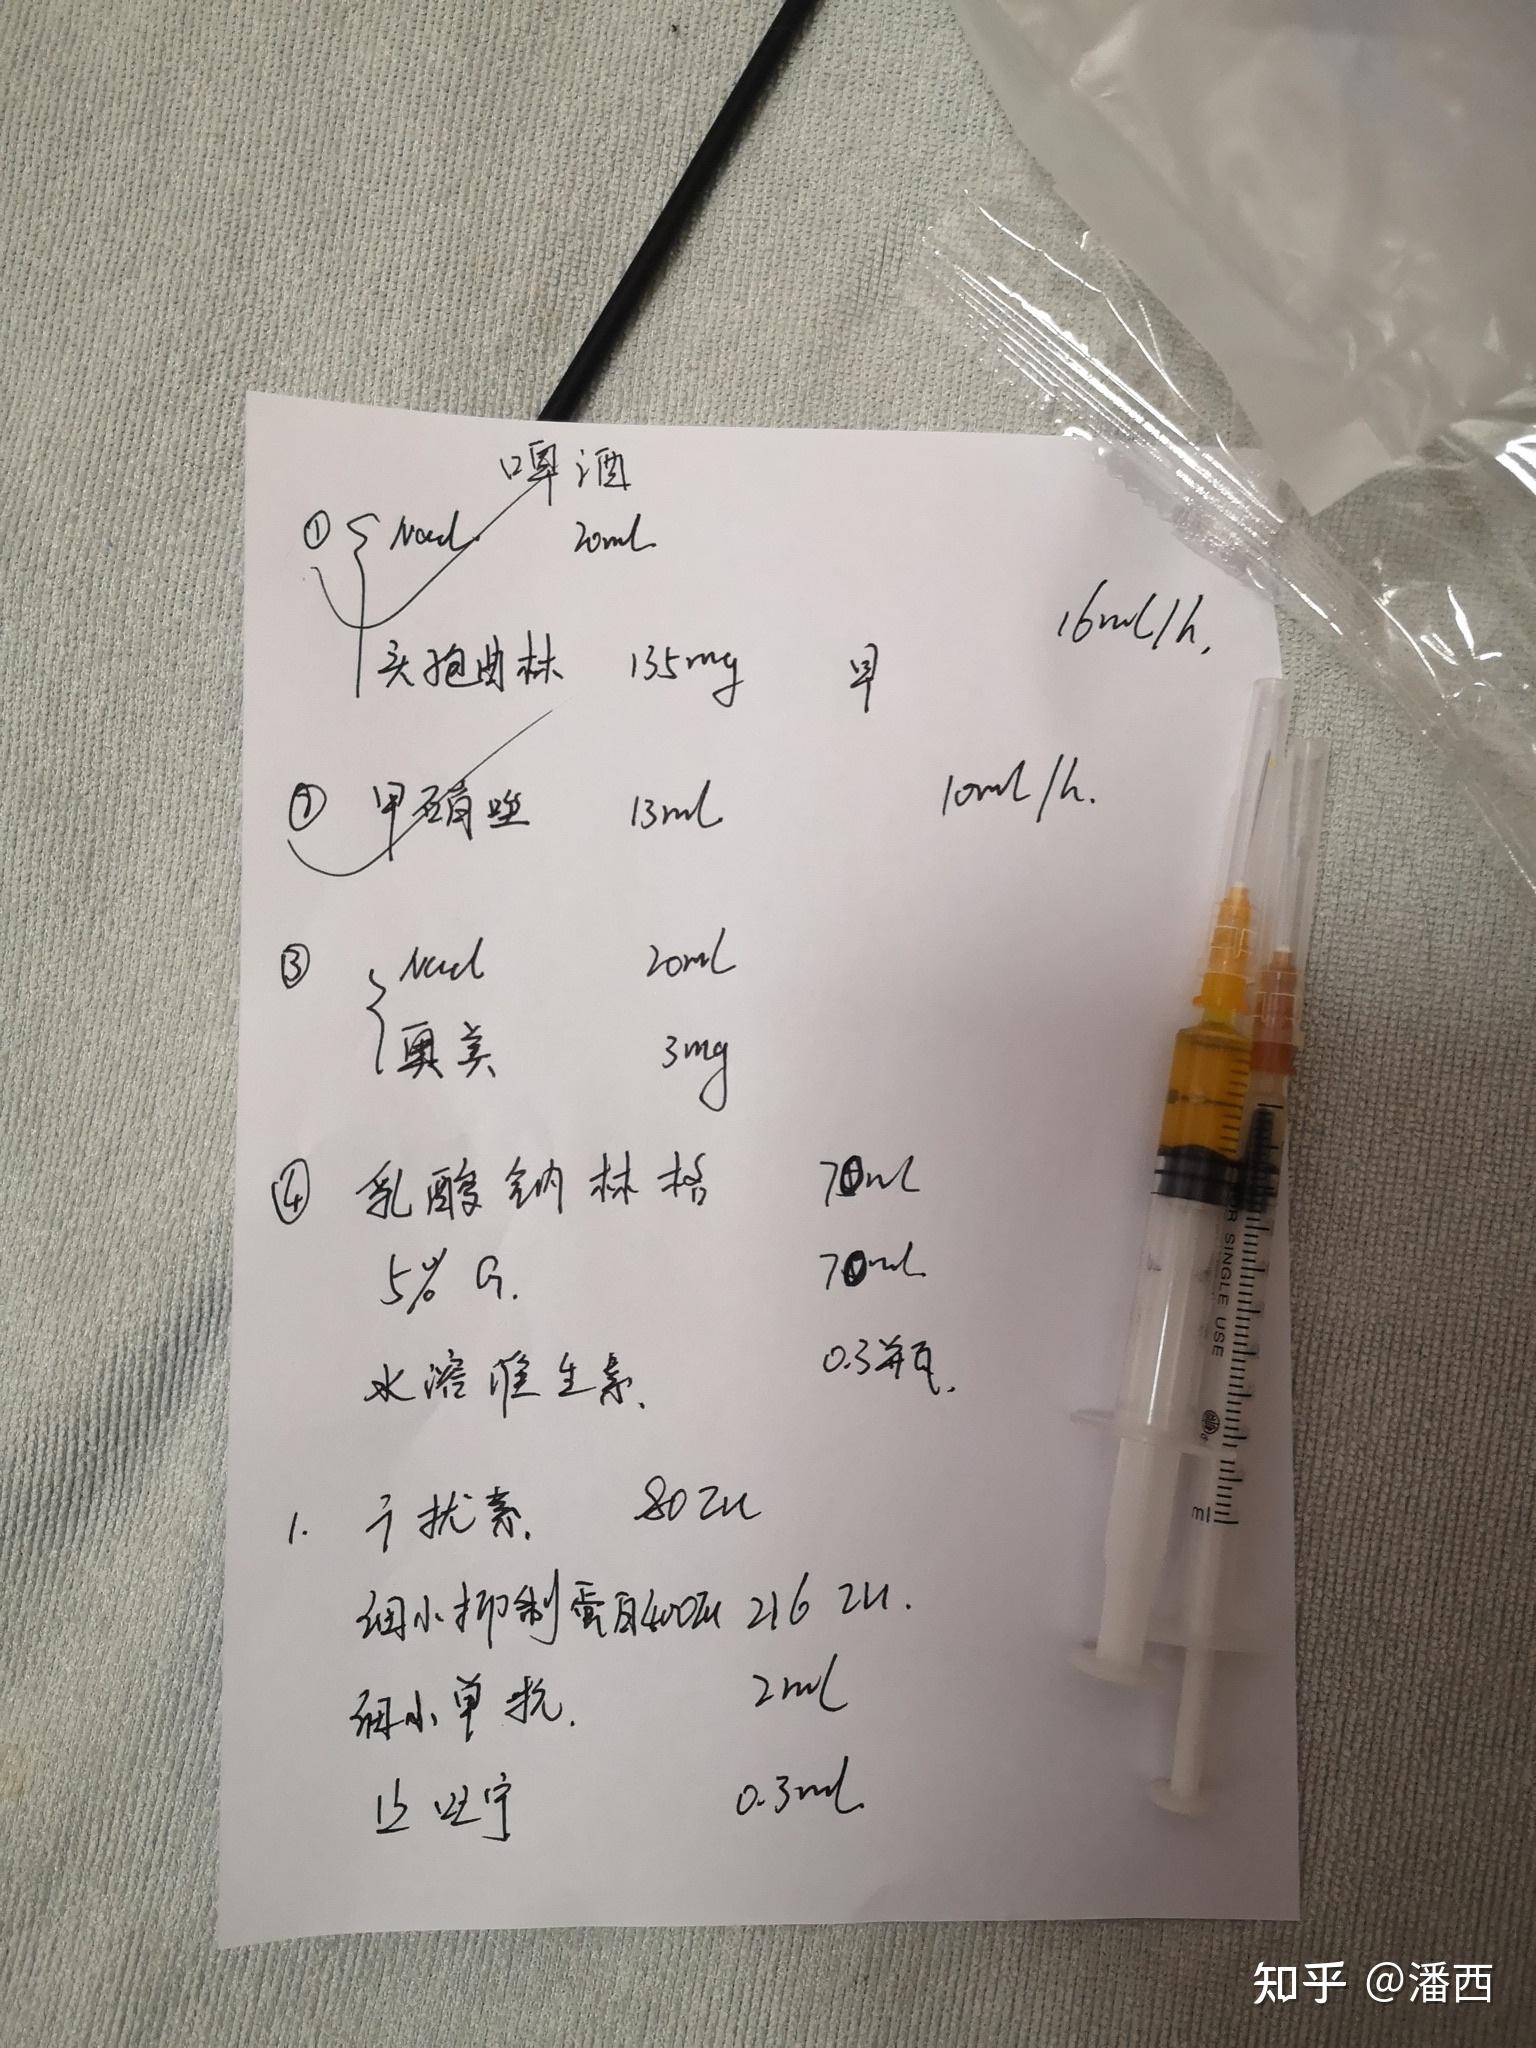 啤酒
① NaCl 20ml
头孢曲林 135mg 早 16ml/h.
② 甲硝唑 13ml 10ml/h.
③ NaCl 20ml
奥美 3mg
④ 乳酸钠林格 70ml
5% G. 70ml
水溶维生素. 0.3瓶.
1. 干扰素. 80万u
细小抑制蛋白400万u 216万u.
细小单抗. 2ml
止吐宁 0.3ml
FOR SINGLE USE
ml
知乎 @潘西